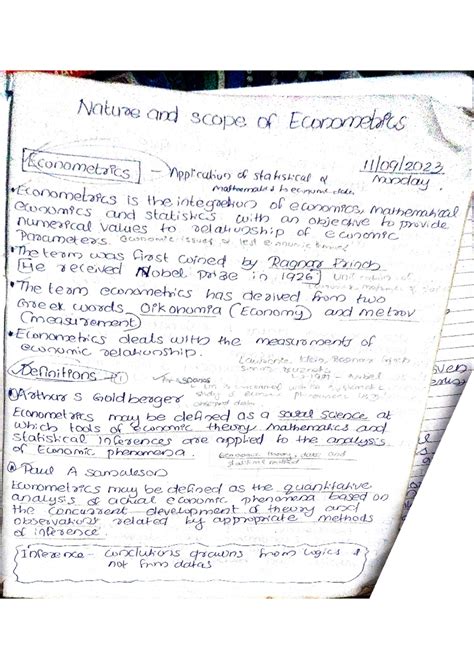 Nature and scope of Econometrics
11/09/2023
Monday
Econometrics - Application of statistical &
mathematical to economic data
• Econometrics is the integration of economics, mathematical
economics and statistics with an objective to provide
numerical values to relationship of economic
Parameters.
• The term was first coined by Ragnar
He received Nobel Prize in 1926
• The term econometrics has derived from two
Greek words, Oikonomia (Economy) and metrov
(measurement)
• Econometrics deals with the measurements of
economic relationship.
Definitions
① Arthur S Goldberger
Econometrics may be defined as a social science at
which tools of economic theory, Mathematics and
statistical inferences are applied to the analysis
of Economic phenomena.
economic theory, data and
statistical method
② Paul A Samuleson
Econometrics may be defined as the quantitative
analysis of actual economic phenomena based on
the concurrent development of theory and
observations related by appropriate methods
of inference
Inference - Conclutions drawns from logics &
not from datas